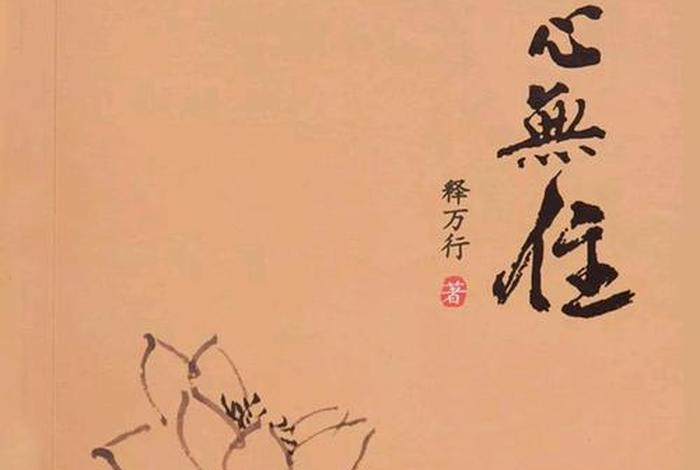 心無住
释万行
著